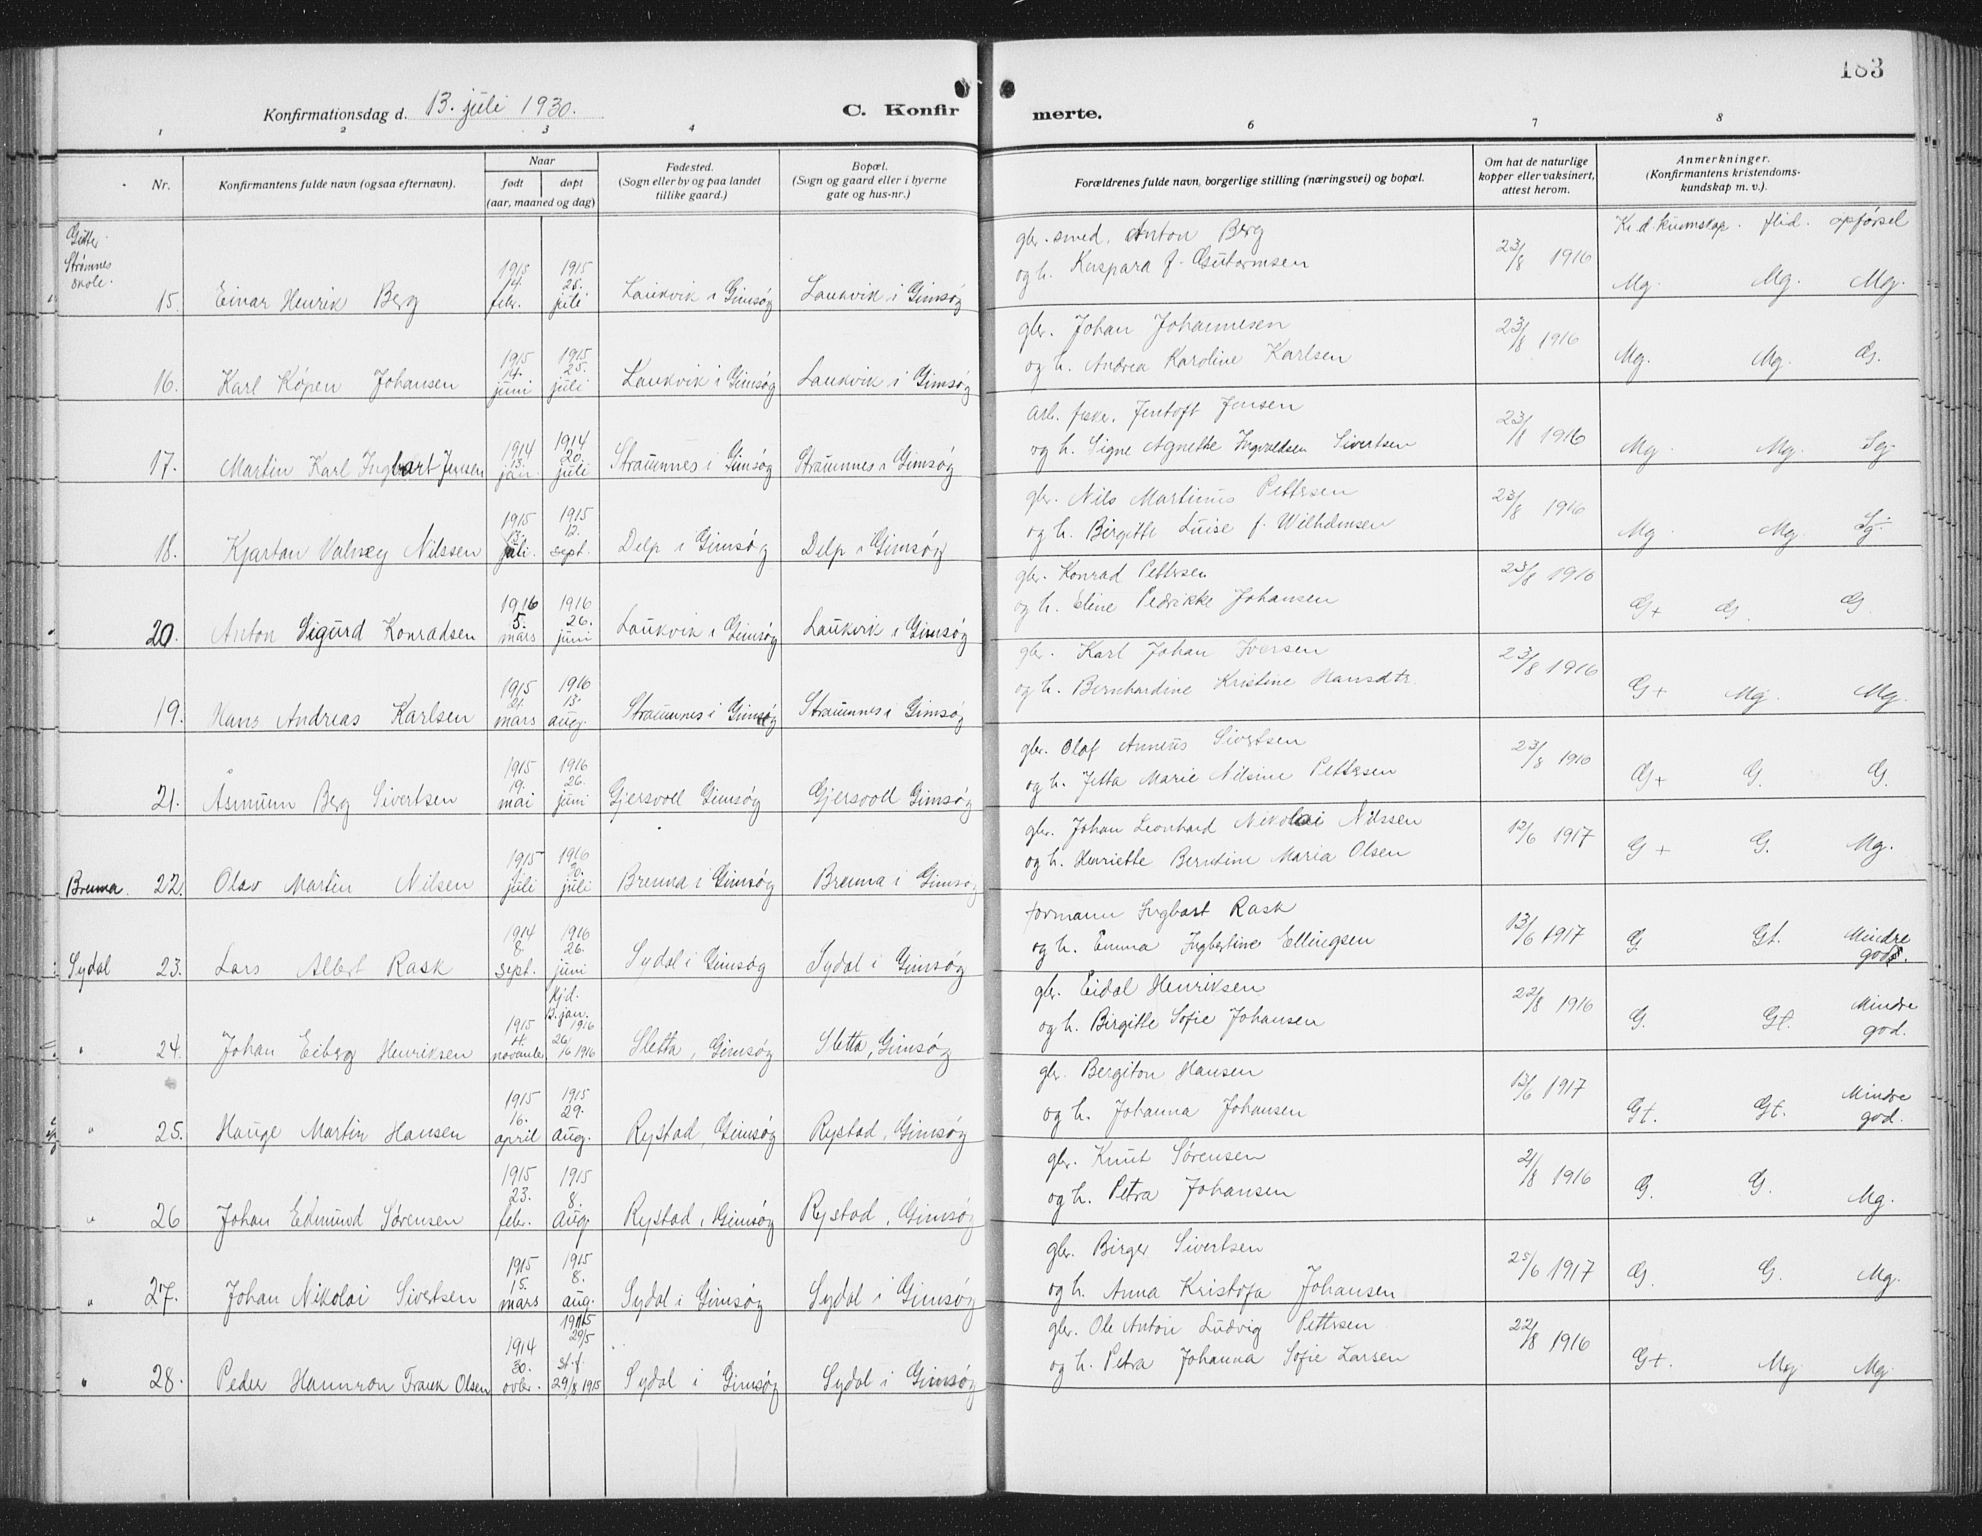 183
Konfirmationsdag d. 13. juli 1930.
C. Konfirmerte.
1 2 3 4 6 7 8
Nr.
Konfirmantens fulde navn (ogsaa efternavn).
Naar
født
døpt
(aar, maaned og dag)
Fødested.
(Sogn eller by og paa landet
tillike gaard.)
Bopæl.
(Sogn og gaard eller i byerne
gate og hus-nr.)
Forældrenes fulde navn, borgerlige stilling (næringsvei) og bopæl.
Om hat de naturlige
kopper eller vaksinert,
attest herom.
Anmerkninger.
(Konfirmantens kristendoms-
kundskap m. v.).
Strømnes
skole.
Kr.d.kunnskap. flid. opførsel
gbr. smed. Anton Berg
og h. Kaspara f. Gutormsen
15. Einar Henrik Berg 1915 14. febr. 1915 25. juli Laukvik i Gimsøy Laukvik i Gimsøy 23/8 1916 Mg. Mg. Mg.
gbr. Johan Johannesen
og h. Andrea Karoline Karlsen
16. Karl Køpen Johansen 1915 14. juni 1915 25. juli Laukvik i Gimsøy Laukvik i Gimsøy 23/8 1916 Mg. Mg. G.
arb. fisker. Jentoft Jensen
og h. Signe Agnethe Ingvaldsen Sivertsen
17. Martin Karl Ingbart Jensen 1914 13. jan. 1914 20. juli Straumnes i Gimsøy Straumnes i Gimsøy 23/8 1916 Mg. Mg. Sg.
gbr. Nils Martinus Pettersen
og h. Birgitte Luise f. Wilhelmsen
18. Kjartan Valney Nilssen 1915 juli. 1915 12. sept. Delp i Gimsøy Delp i Gimsøy 23/8 1916 Mg. Mg. Sg.
gbr. Konrad Pettersen
og h. Eline Pedrikke Johansen
20. Anton Sigurd Konradsen 1916 5. mars 1916 26. juni Laukvik i Gimsøy Laukvik i Gimsøy 23/8 1916 G+ G. G.
gbr. Karl Johan Iversen
og h. Bernhardine Kristine Hansdtr.
19. Hans Andreas Karlsen 1915 21. mars 1916 13. aug. Straumnes i Gimsøy Straumnes i Gimsøy 23/8 1916 G+ Mg. Mg.
gbr. Olaf Anneus Sivertsen
og h. Jetta Marie Nilsine Pettersen
21. Åsmunn Berg Sivertsen 1915 19. mai 1916 26. juni Gjersvoll Gimsøy Gjersvoll Gimsøy 23/8 1916 G+ G. G.
gbr. Johan Leonhard Nikolai Nilssen
og h. Henriette Berntine Maria Olsen
Brenna. 22. Olav Martin Nilsen 1915 juli 1916 juli Brenna i Gimsøy Brenna i Gimsøy 12/6 1917 G+ G. Mg.
formann Ingbart Rask
og h. Emma Ingbertine Ellingsen
Sydal 23. Lars Albert Rask 1914 8. sept. 1916 26. juni Sydal i Gimsøy Sydal i Gimsøy 13/6 1917 G. Gt. Mindre god.
gbr. Eidal Henriksen
og h. Birgitte Sofie Johansen
" 24. Johan Eiberg Henriksen 1915 4. november hjd. jan. 1916 26/6 1916 Sletta, Gimsøy Sletta, Gimsøy 22/8 1916 G. Gt. Mindre god.
gbr. Bergiton Hansen
og h. Johanna Johansen
" 25. Hauge Martin Hansen 1915 16. april 1915 29. aug. Rystad, Gimsøy Rystad, Gimsøy 13/6 1917 Gt. Gt. Mindre god.
gbr. Knut Sørensen
og h. Petra Johansen
" 26 Johan Edmund Sørensen 1915 23. febr. 1915 8. aug. Rystad, Gimsøy Rystad, Gimsøy 21/8 1916 G. G. Mg.
gbr. Birger Sivertsen
og h. Anna Kristofa Johansen
" 27. Johan Nikolai Sivertsen 1915 15. mars 1915 8. aug. Sydal i Gimsøy Sydal i Gimsøy 25/6 1917 G. G. Mg.
gbr. Ole Anton Ludvig Pettersen
og h. Petra Johanna Sofie Larsen
" 28. Peder Hannron Frank Olsen 1914 30. ovbr. 1915 29/5 st.f. 29/8 1915 Sydal i Gimsøy Sydal i Gimsøy 22/8 1916 G+. Mg. Mg.